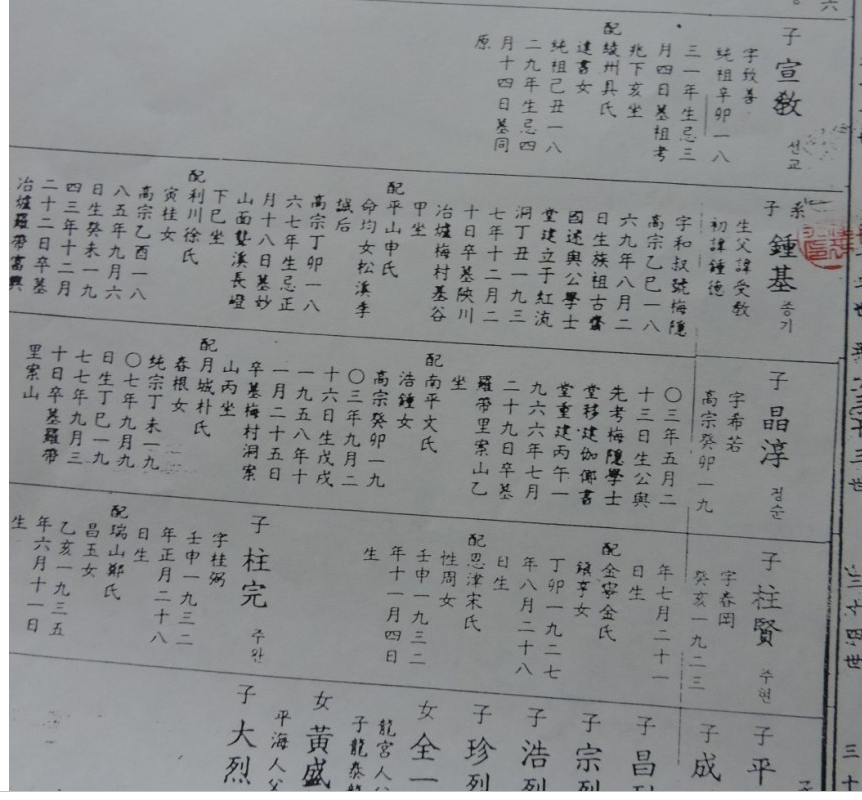 六
子 宣敎 선교
字致善
純祖辛卯一八
三一年生忌三
月四日墓祖考
兆下亥坐
配綾州具氏
達書女
純祖己丑一八
二九年生忌四
月十四日墓同
原
系
子 鍾基 종기
生父諱受敎
初諱鍾德
字和叔號梅隱
高宗乙巳一八
六九年八月二
日生族祖古齋
國述與公學士
堂建立于紅流
洞丁丑一九三
七年十二月二
十日卒墓陜川
冶爐梅村墓谷
甲坐
配平山申氏
命均女松溪季
誠后
高宗丁卯一八
六七年生忌正
月十八日墓妙
山面墊溪長嶝
下巳坐
配利川徐氏
寅桂女
高宗乙酉一八
八五年九月六
日生癸未一九
四三年十二月
二十二日卒墓
冶爐羅帶富興
子 晶淳 정순
字希若
高宗癸卯一九
〇三年五月二
十三日生公與
先考梅隱學士
堂移建伽倻書
堂重建丙午一
九六六年七月
二十九日卒墓
羅帶里案山乙
坐
配南平文氏
浩鍾女
高宗癸卯一九
〇三年九月二
十六日生戊戌
一九五八年十
一月二十五日
卒墓梅村洞案
山丙坐
配月城朴氏
春根女
純宗丁未一九
〇七年九月九
日生丁巳一九
七七年九月三
十日卒墓羅帶
里案山
子 柱賢 주현
字春岡
癸亥一九二三
年七月二十一
日生
配金寧金氏
鎭亨女
丁卯一九二七
年八月二十八
日生
配恩津宋氏
性周女
壬申一九三二
年十一月四日
生
子 柱完 주완
字桂弼
壬申一九三二
年正月二十八
日生
配瑞山鄭氏
昌玉女
乙亥一九三五
年六月十一日
生
子 平
子 成
子 昌烈
子 宗烈
子 浩烈
子 珍烈
女 全一
龍宮人父
子龍泰
女 黃盛
平海人父
子 大烈
三十